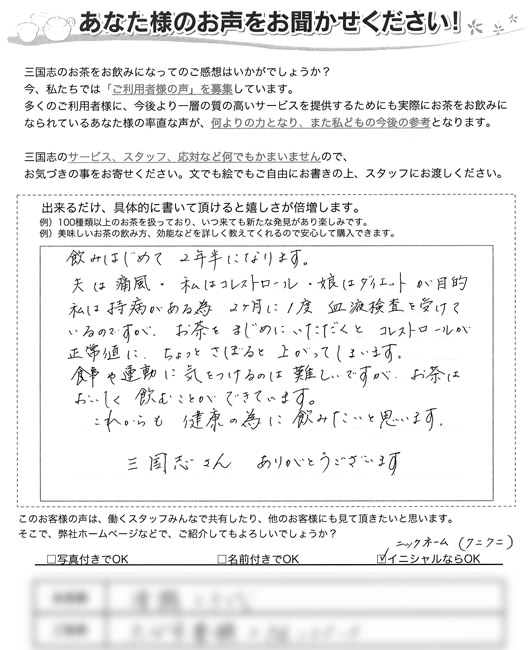 あなた様のお声をお聞かせください!
三国志のお茶をお飲みになってのご感想はいかがでしょうか?
今、私たちでは「ご利用者様の声」を募集しています。
多くのご利用者様に、今後より一層の質の高いサービスを提供するためにも実際にお茶をお飲みに
なられているあなた様の率直な声が、何よりの力となり、また私どもの今後の参考となります。
三国志のサービス、スタッフ、応対など何でもかまいませんので、
お気づきの事をお寄せください。文でも絵でもご自由にお書きの上、スタッフにお渡しください。
出来るだけ、具体的に書いて頂けると嬉しさが倍増します。
例）100種類以上のお茶を扱っており、いつ来ても新たな発見があり楽しみです。
例）美味しいお茶の飲み方、効能などを詳しく教えてくれるので安心して購入できます。
飲みはじめて 2年半になります。
夫は痛風・私はコレストロール・娘はダイエットが目的
私は持病がある為 2ヶ月に1度 血液検査を受けて
いるのですが、お茶をまじめにいただくと コレストロールが
正常値に、ちょっとさぼると上がってしまいます。
食事や運動に気をつけるのは難しいですが、お茶は
おいしく飲むことができています。
これからも 健康の為に飲みたいと思います。
三国志さん ありがとうございます
このお客様の声は、働くスタッフみんなで共有したり、他のお客様にも見て頂きたいと思います。
そこで、弊社ホームページなどで、ご紹介してもよろしいでしょうか?
ニックネーム（クニクニ）
□写真付きでOK □名前付きでOK ☑イニシャルならOK